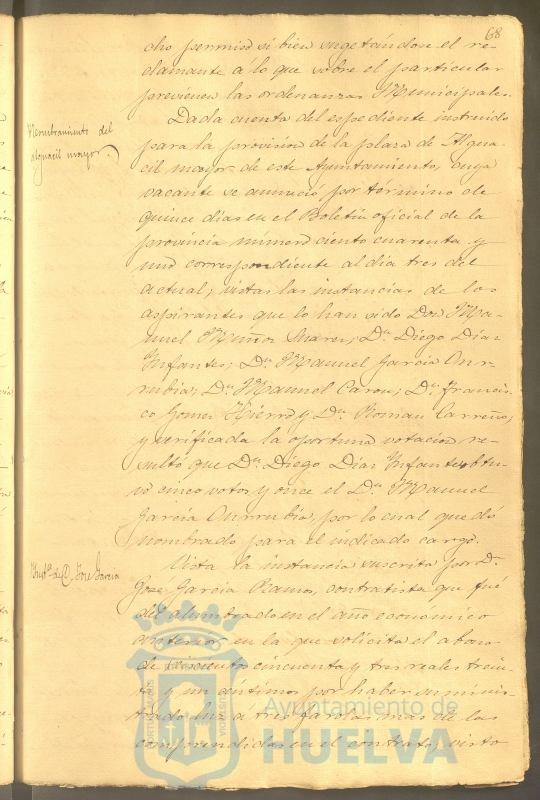 68
cho permiso si bien sugetándose el re-
clamante a lo que sobre el particular
previenen las ordenanzas Municipales.
Nombramiento del
alguacil mayor.
Dada cuenta del espediente instruido
para la provision de la plaza de Algua-
cil mayor de este Ayuntamiento, cuya
vacante se anunció por término de
quince dias en el Boletin oficial de la
provincia número ciento cuarenta y
uno correspondiente al dia tres del
actual; vistas las instancias de los
aspirantes que lo han sido Don Ma-
nuel Muñoz Suarez; Dn. Diego Dias
Infantes; Dn. Manuel Garcia
Dn. Manuel Dn. Francis-
co Gomez Hierro y Dn. Roman Carreño;
y verificada la oportuna votacion re-
sultó que Dn. Diego Dias Infantes obtu-
vo cinco votos y once el Dn. Manuel
Garcia por lo cual quedó
nombrado para el indicado cargo.
D. Jose Garcia
Vista la instancia suscrita por D.
José Garcia Ramos, contratista que fué
del alumbrado en el año economico
anterior en la que solicita el abono
de seiscientos cincuenta y tres reales trein-
ta y un céntimos por haber suminis-
trado luz á tres farolas mas de las
comprendidas en el contrato, visto
Ayuntamiento de
HUELVA